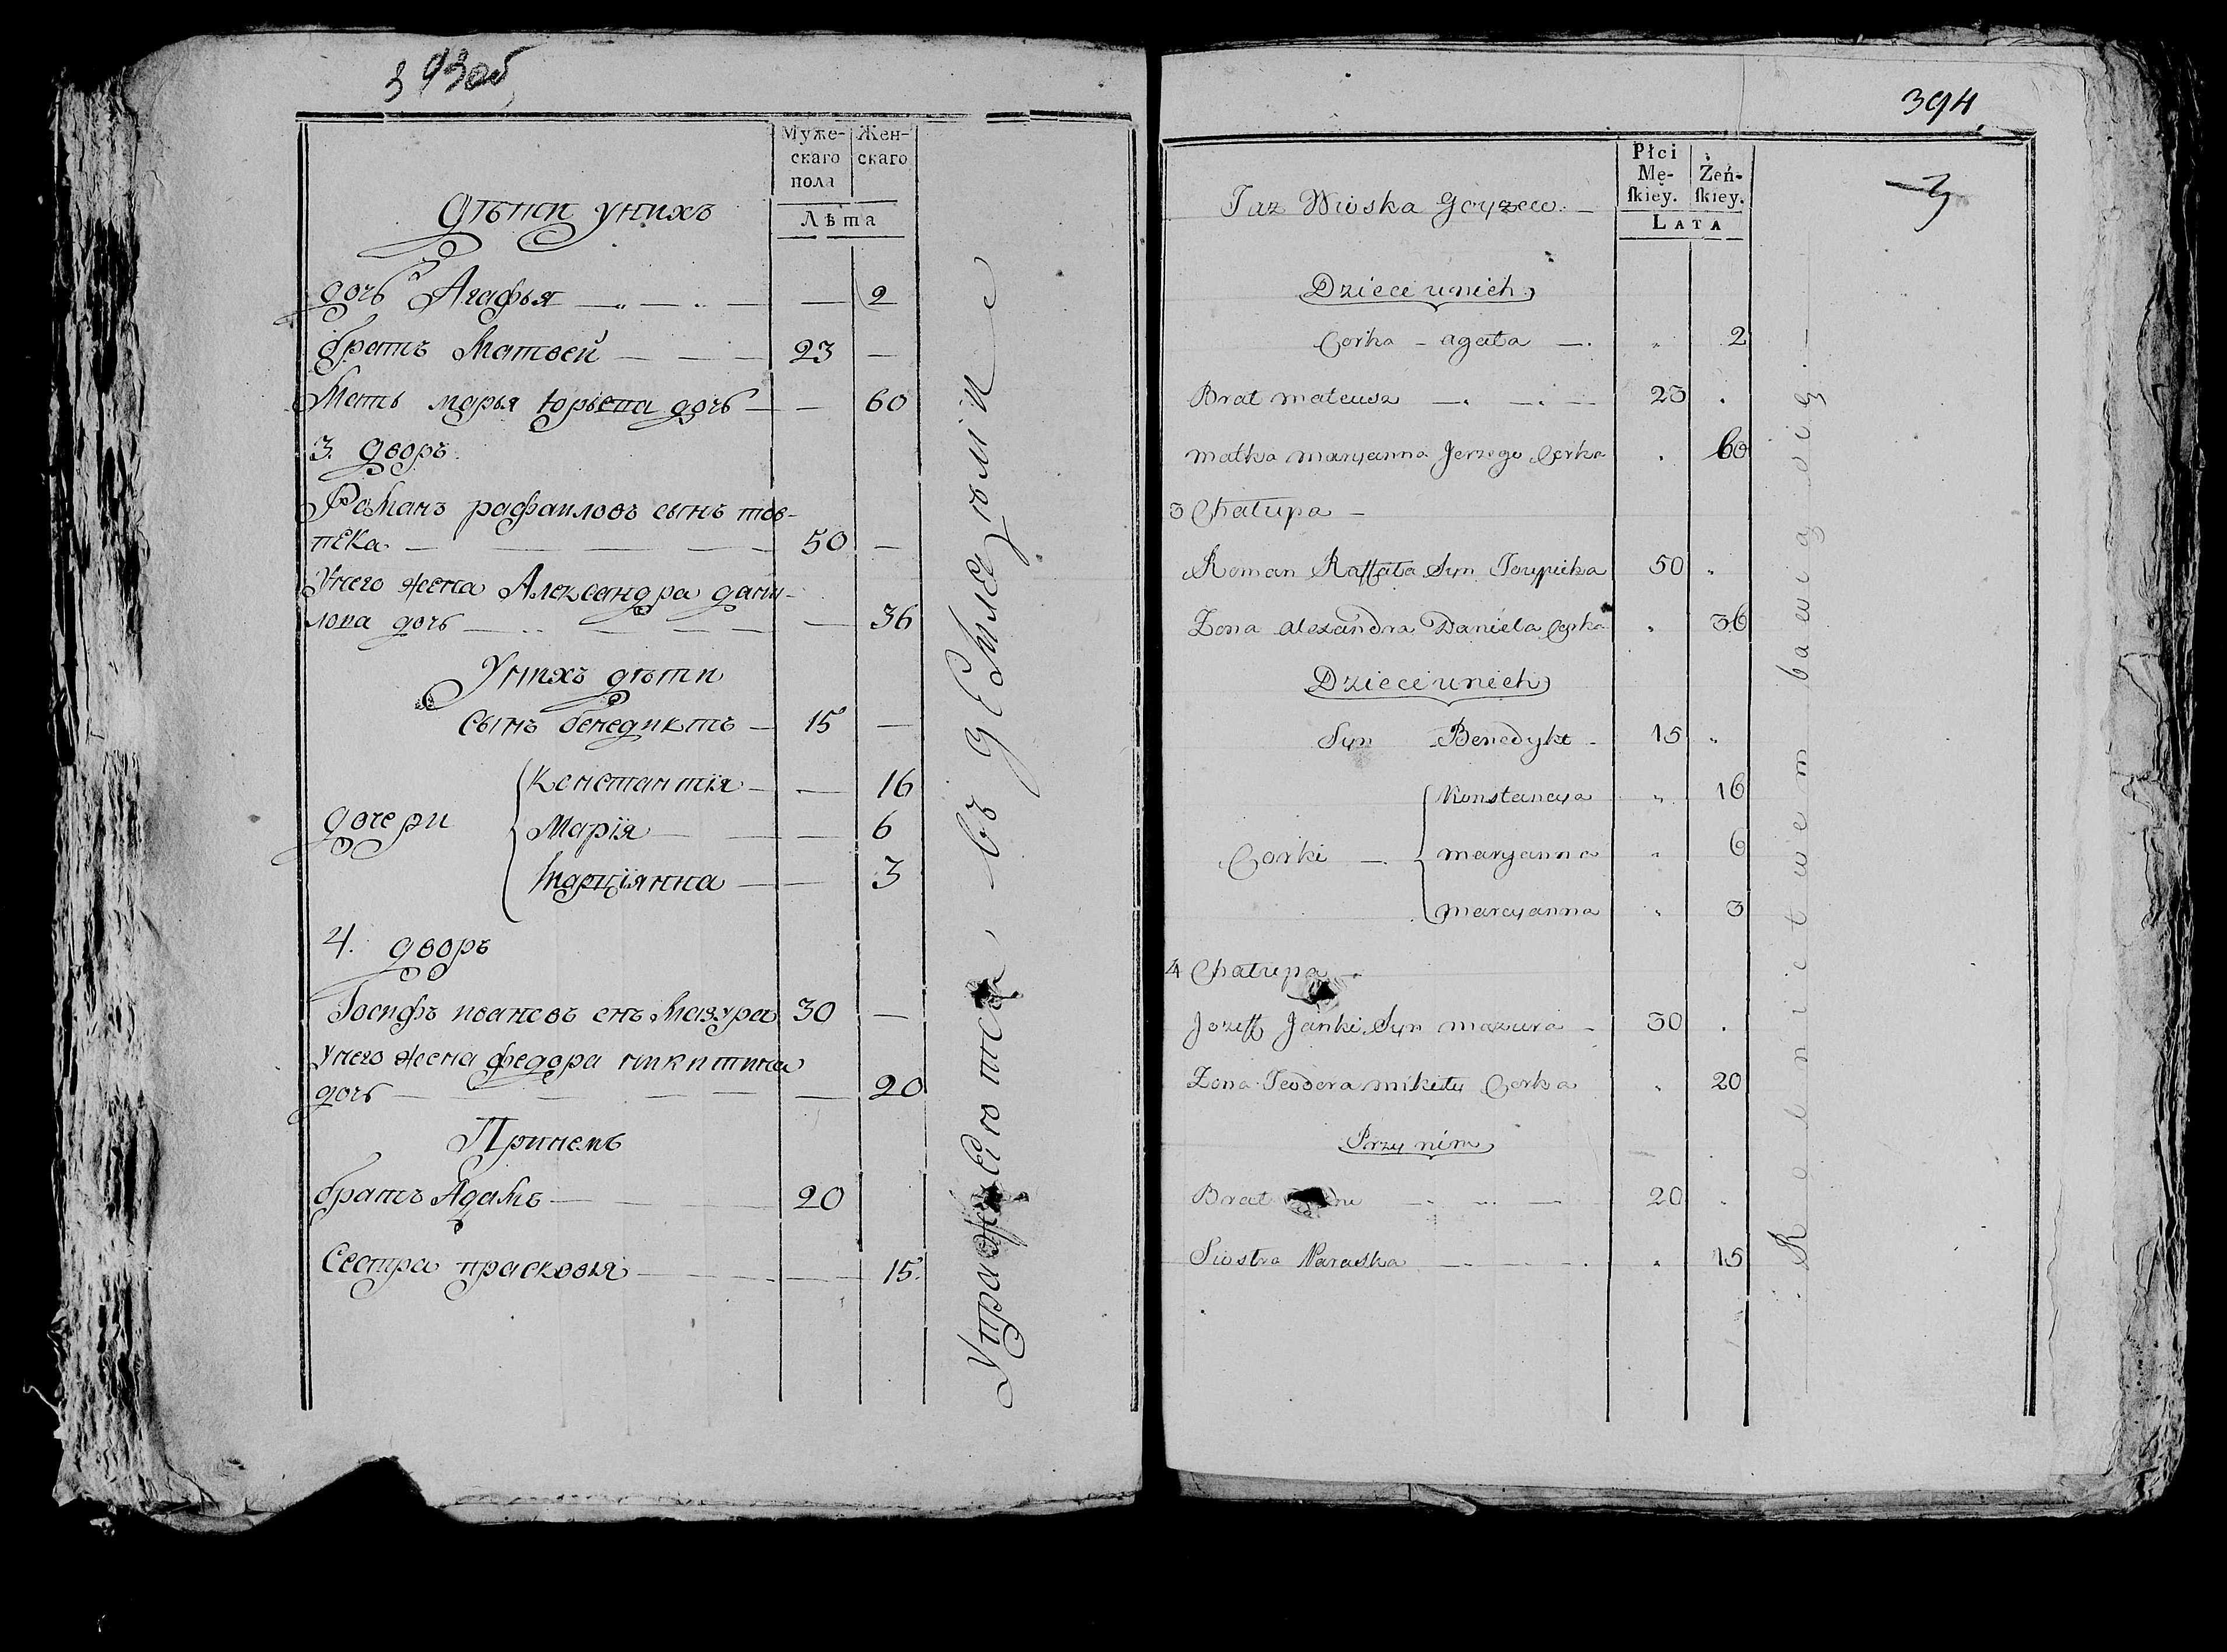 393об
Муже-
скаго
пола
Жен-
скаго
Лѣта
Дѣти унихъ
дочь Агафья — — — 2
братъ Матвей — — 23 —
Мать марья юрьева дочь — — 60
3. дворъ.
Романъ рафаиловъ сынъ тов-
пека — — — — 50 —
Унего жена Александра дани-
лова дочь — — — — — 36
Унихъ дѣти
Сынъ бенедиктъ — 15 —
Константія — — 16
дочери Марія — — 6
Марціянна — — 3
4. дворъ
Іосифъ ивановъ снъ Мазура 30 —
Унего жена федора никитина
дочь — — — — — 20
Принемъ
братъ Адамъ — — — 20
Сестра прасковья — — — — 15.
Упражняются въ земледѣліи
394
Płci
Mę-
skiey.
Żeń-
skiey.
LATA
Taz Wioska
Dzieci unich
Corka - agata —. " 2
Brat mateusz —. —. — 23 .
matka maryanna Jerzego Corka . 60
3 Chalupa —
Roman Raffala Syn Toupieka 50 "
Zona alexandra Daniela Corka " 36
Dzieci unich
Syn Benedykt - 15 "
Konstancya " 16
Corki —. maryanna " 6
marcyanna " 3
4 Chalupa —.
Jozeff Janki Syn mazura - 30 .
Zona Teodora mikity Corka " 20
Przy nim
Brat — — — 20 .
Siostra Paraska — — — . " 15
Rolnictwem bawią się.